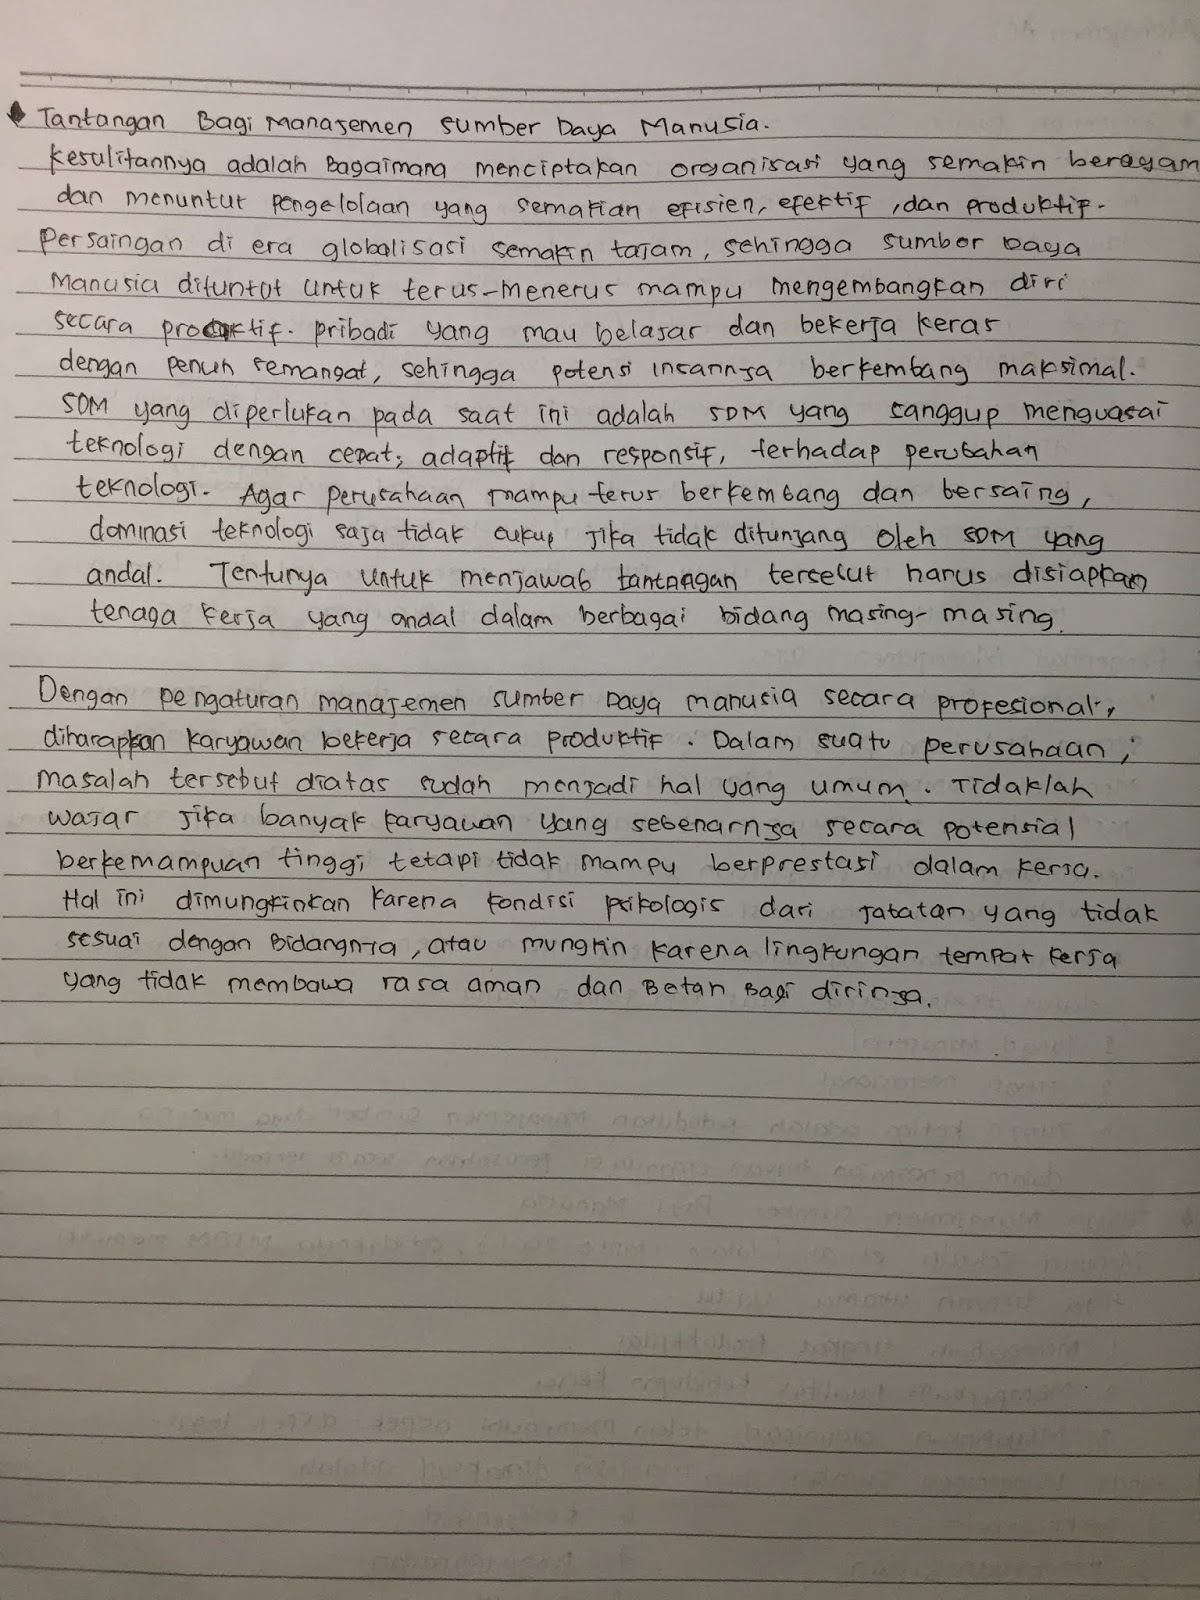 Tantangan Bagi Manajemen Sumber Daya Manusia.
Kesulitannya adalah Bagaimana menciptakan organisasi yang semakin beragam
dan menuntut pengelolaan yang semakian efisien, efektif, dan produktif.
Persaingan di era globalisasi semakin tajam, sehingga sumber Daya
Manusia dituntut untuk terus-menerus mampu mengembangkan diri
secara proaktif. pribadi yang mau belajar dan bekerja keras
dengan penuh semangat, sehingga potensi insannya berkembang maksimal.
SDM yang diperlukan pada saat ini adalah SDM yang sanggup menguasai
teknologi dengan cepat, adaptif dan responsif, terhadap perubahan
teknologi. Agar perusahaan mampu terus berkembang dan bersaing,
dominasi teknologi saja tidak cukup jika tidak ditunjang oleh SDM yang
andal. Tentunya untuk menjawab tantangan tersebut harus disiapkan
tenaga kerja yang andal dalam berbagai bidang masing-masing.
Dengan pengaturan manajemen sumber Daya manusia secara profesional,
diharapkan karyawan bekerja secara produktif. Dalam suatu perusahaan,
masalah tersebut diatas sudah menjadi hal yang umum. Tidaklah
wajar jika banyak karyawan yang sebenarnya secara potensial
berkemampuan tinggi tetapi tidak mampu berprestasi dalam kerja.
Hal ini dimungkinkan karena kondisi psikologis dari jabatan yang tidak
sesuai dengan Bidangnya, atau mungkin karena lingkungan tempat kerja
yang tidak membawa rasa aman dan Betah Bagi dirinya.